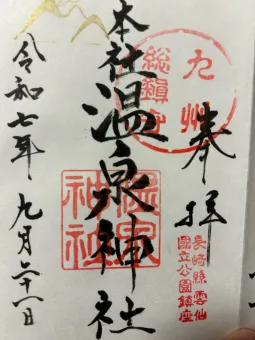 奉拝
九州
総鎮守
長崎縣雲仙
國立公園鎮座
本社温泉神社
温泉
神社
令和七年九月二十八日